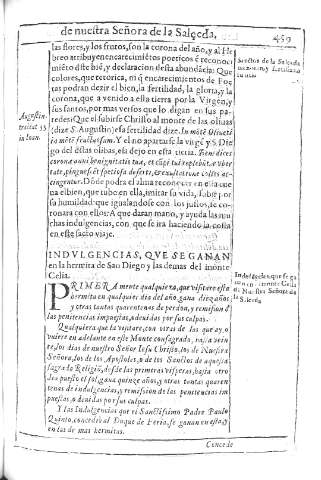 de nuestra Señora de la Salçeda,
459
las flores, y los frutos, son la corona del año, y al He
breo atribuyen encarecimiẽtos poeticos ẽ reconoci
miẽto dẽste biẽ, y declaracion desta abundãcia: Que
colores, que retorica, ni q̃ encarecimentos de Poe
tas podran dezir el bien, la fertilidad, la gloria, y la
corona, que a venido a esta tierra por la Virgen, y
sus santos, por mas versos que lo digan en sus pa
redes: Que el subirse Christo al monte de las oliuas
(dize S. Augustin) esa fertilidad dize. In mõte Oliueti
in mõte fructuosum. Y el no apartarse la virgẽ y S. Die
go del estas olibas, es dejo en esta tierra. Benedices
corone anni benignitatis tuæ, et cãpi tui replebũt vber
tate, pingues et speciosa deserti, et exultatione colles ac
cingentur. Dõde podra el alma reconocer en ella que
na oibien, que tube en ella, imitar su vida, subir por
su humildad: que igualandose con los justos, le co
ronara con ellos: A que daran mano, y ayuda las mu
chas indulgencias, con que se ira haciendo la costa
en este sacro viaje.
Augustin.
tratat. 33
in Ioan.
INDVLGENCIAS, QVE SE GANAN
en la hermita de San Diego y las demas del monte
Celia.
PRIMERAmente qualquiera, que visitare esta
hermita en qualquier dia del año, gana diez años,
y otras tantas quarentenas de perdon, y remision d
las penitencias impuestas, o deuidas por sus culpas.
Qualquiera que la visitare, con otras de las que ay, o
vuiere en adelante en este Monte consagrado, rasa a vein
te, los dias de nuestro Señor Iesu Christo, los de Nuestra
Señora, los de los Apostoles, o de los Sanctos de aquesta
sagrada Religiõ, desde las primeras visperas, hasta otro
dia puesto el sol, gana quinze años, y otras tantas quaren
tenas de indulgencias, y remission de las penitencias im
puestas, o deuidas por sus culpas.
Y las Indulgencias que el Sanctissimo Padre Paulo
Quinto, concedio al Duque de Feria, se ganan en esta, y
en las de mas hermitas.
Concede